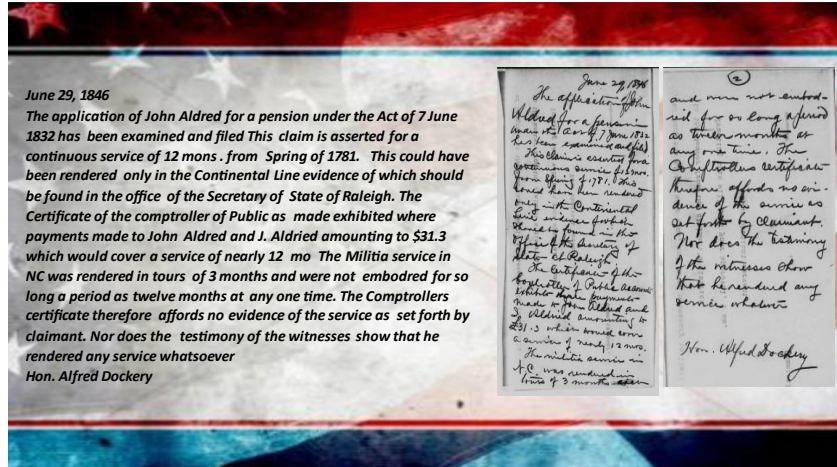 June 29, 1846
The application of John Aldred for a pension under the Act of 7 June
1832 has been examined and filed This claim is asserted for a
continuous service of 12 mons . from Spring of 1781. This could have
been rendered only in the Continental Line evidence of which should
be found in the office of the Secretary of State of Raleigh. The
Certificate of the comptroller of Public as made exhibited where
payments made to John Aldred and J. Aldried amounting to $31.3
which would cover a service of nearly 12 mo The Militia service in
NC was rendered in tours of 3 months and were not embodred for so
long a period as twelve months at any one time. The Comptrollers
certificate therefore affords no evidence of the service as set forth by
claimant. Nor does the testimony of the witnesses show that he
rendered any service whatsoever
Hon. Alfred Dockery
June 29, 1846
The application of John
Aldred for a pension
under the Act of 7 June 1832
has been examined and filed
This claim is asserted for a
continuous service of 12 mos.
from Spring of 1781. This
could have been rendered
only in the Continental
Line evidence of which
should be found in the
Office of the Secretary of
State at Raleigh
The Certificate of the
Comptroller of Public Accounts
exhibits payments
made to John Aldred and
J. Aldred amounting to
£31.3 which would cover
a service of nearly 12 mos.
The militia service in
N.C. was rendered in
tours of 3 months
2
and were not embod-
ied for so long a period
as twelve months at
any one time. The
Comptrollers certificate
therefore affords no evi-
dence of the service as
set forth by claimant.
Nor does the testimony
of the witnesses show
that he rendered any
service whatever
Hon. Alfred Dockery